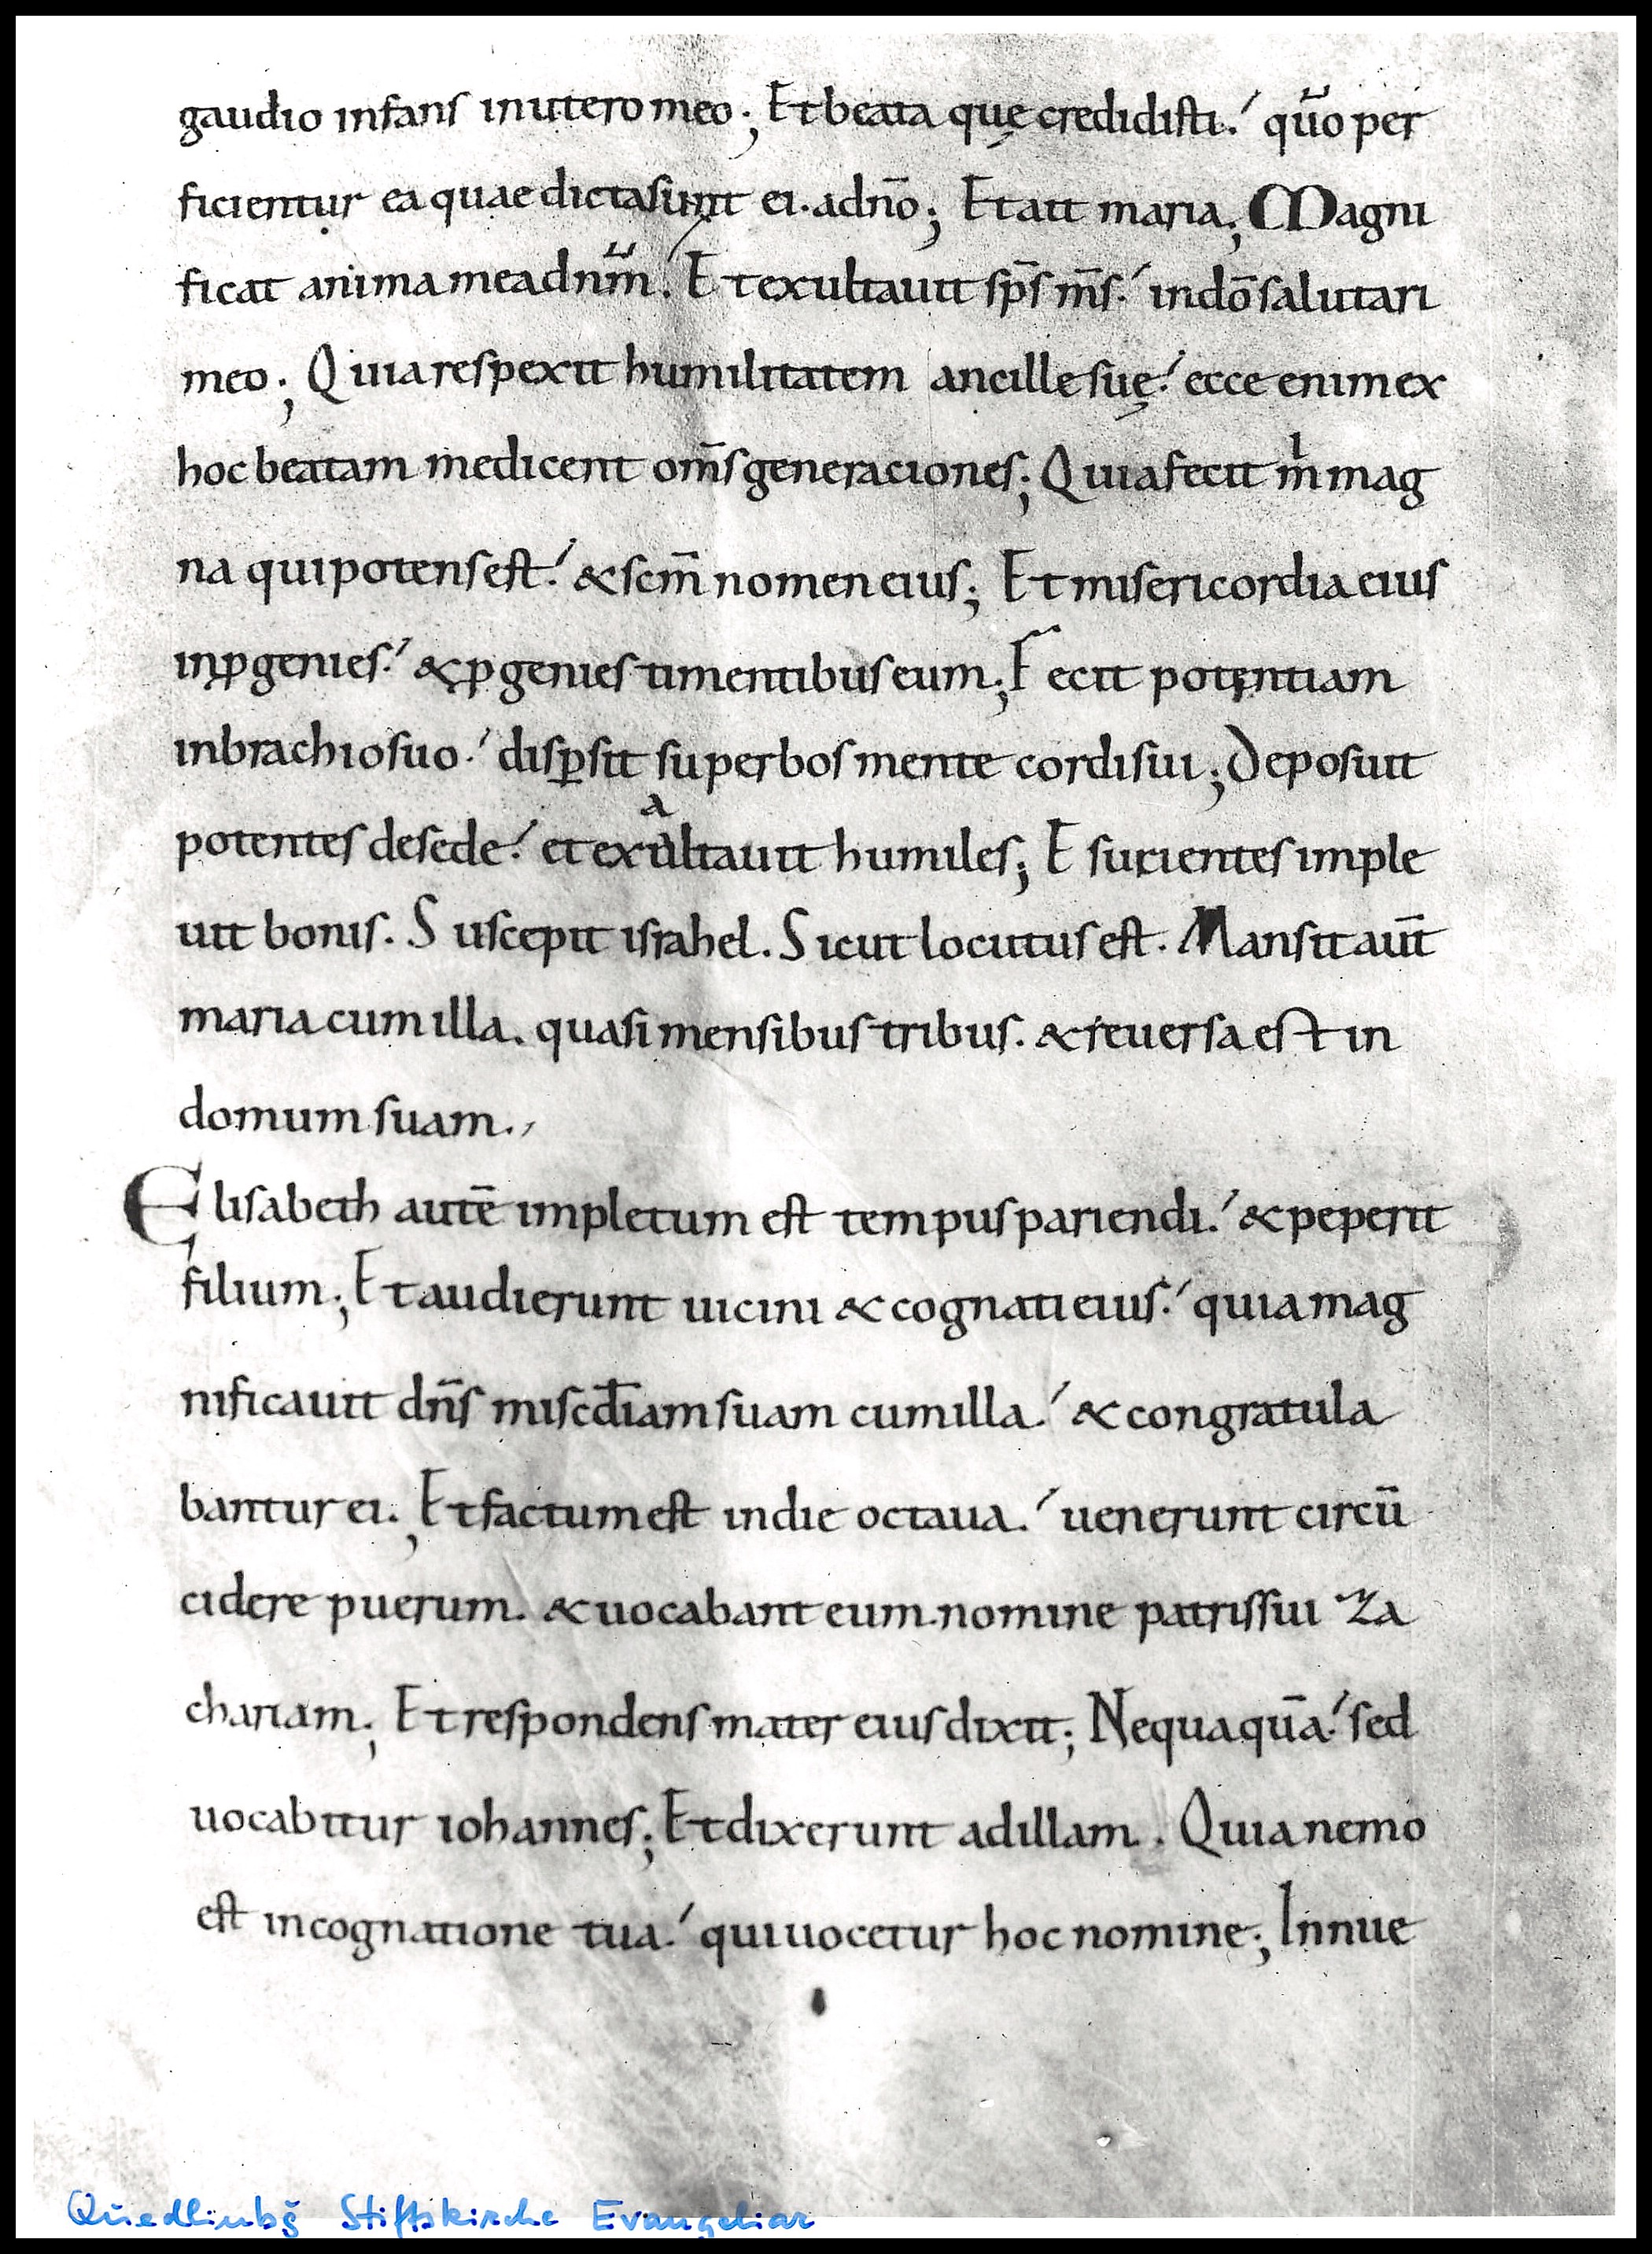 gaudio infans in utero meo; Et beata quę credidisti. qűo per
ficientur ea quae dicta sunt ei. a dño; Et ait maria; Magni
ficat anima mea dnm̋. Et exultauit sp̄s m̄s. in dō salutari
meo; Quia respexit humilitatem ancille suę. ecce enim ex
hoc beatam me dicent om̄s generaciones; Quia fecit mͥ mag
na qui potens est. & scm̄ nomen eius; Et misericordia eius
in ꝓgenies. & ꝓgenies timentibus eum; Fecit potentiam
in brachio suo. disꝑsit superbos mente cordis sui; Deposuit
potentes de sede. et exultauit humiles; Esurientes imple
uit bonis. Suscepit israhel. Sicut locutus est. Mansit aūt
maria cum illa. quasi mensibus tribus. & reuersa est in
domum suam.,
Elisabeth autē impletum est tempus pariendi. & peperit
filium; Et audierunt uicini & cognati eius. quia mag
nificauit dn̄s misc̄diam suam cum illa. & congratula
bantur ei; Et factum est in die octaua. uenerunt circū
cidere puerum. & uocabant eum nomine patris sui Za
chariam; Et respondens mater eius dixit; Nequaquā. sed
uocabitur iohannes; Et dixerunt ad illam. Quia nemo
est in cognatione tua. qui uocetur hoc nomine; Innue
Quedlinbg Stiftskirche Evangeliar